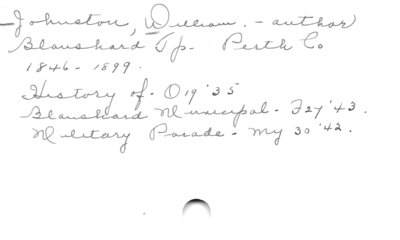 Johnston, William. - author
Blanshard Tp. Perth Co
1846 - 1899.
History of - O 19 '35
Blanshard Municipal - F 27 '43.
Military Parade - My 30 '42.